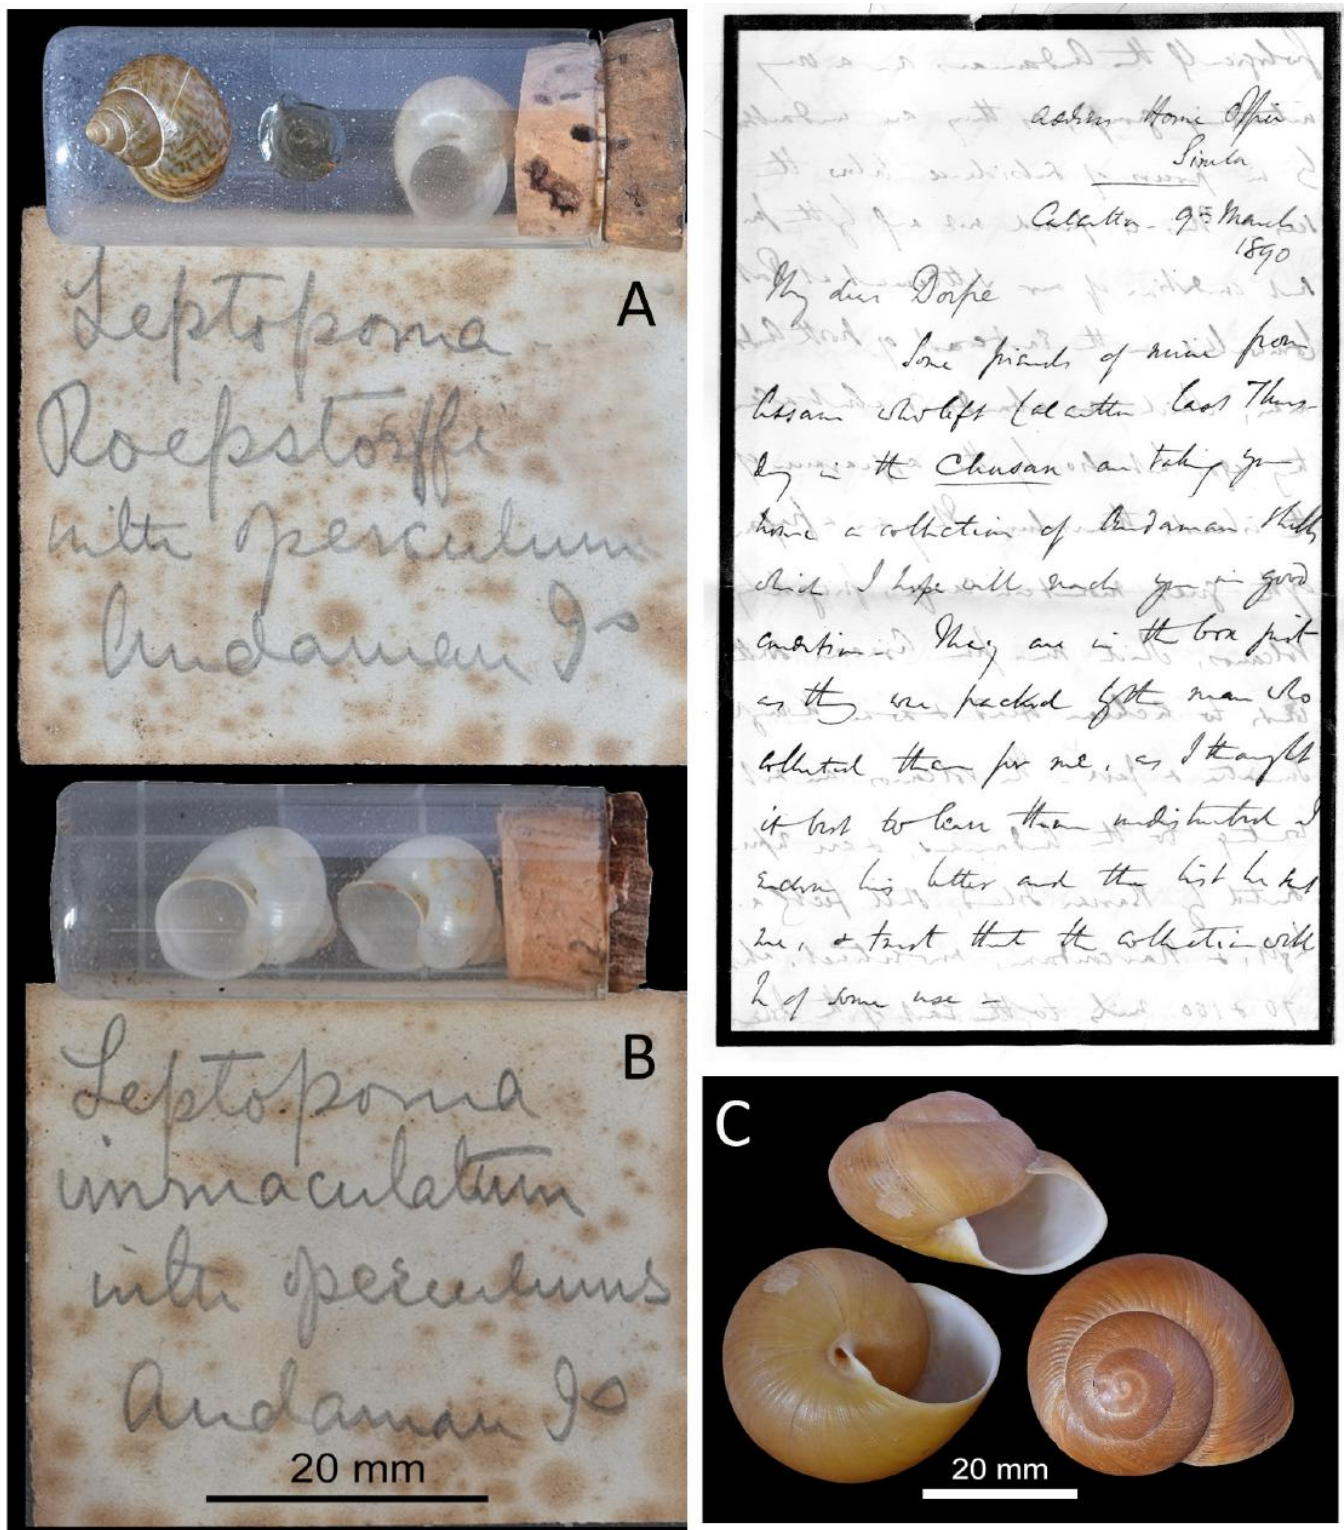 A
Leptopoma
Roepstorffi
with operculum
Andaman Is
B
Leptopoma
immaculatum
with operculums
Andaman Is
20 mm
Address Home Office
Simla
Calcutta - 9th March
1890
My dear Dorpe
Some friends of mine from
Assam who left Calcutta last Thurs-
day in the Chusan are taking you
home a collection of Andaman Shells
which I hope will reach you in good
condition. They are in the box just
as they were packed by the man who
collected them for me, as I thought
it best to leave them undisturbed I
enclose his letter and the list he sent
me, & trust that the collection will
be of some use -
C
20 mm